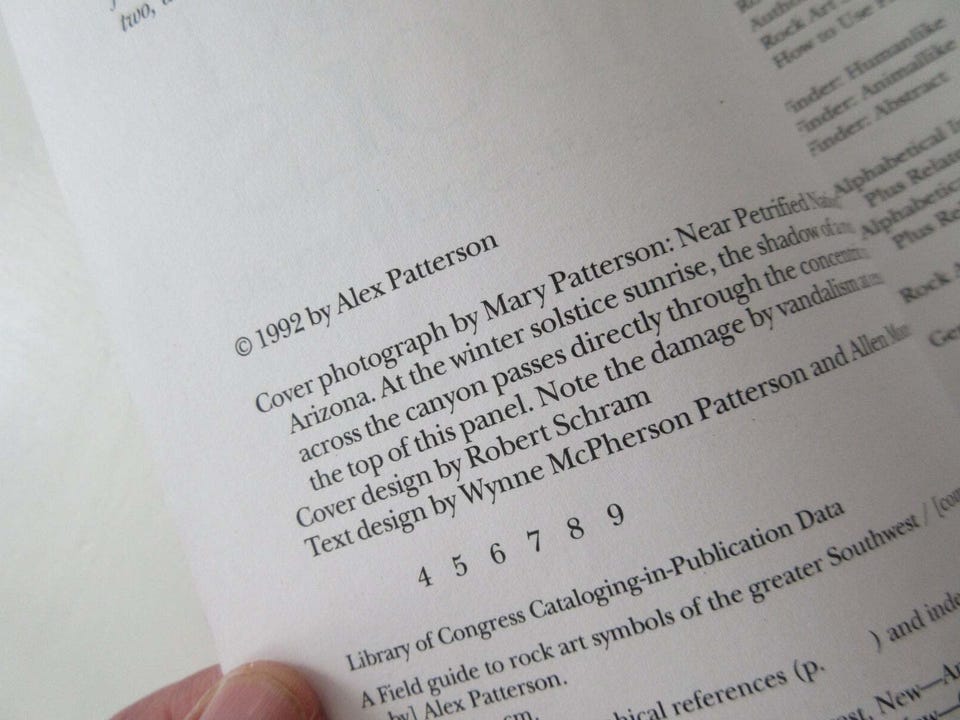 two,
© 1992 by Alex Patterson
Cover photograph by Mary Patterson: Near Petrified
Arizona. At the winter solstice sunrise, the shadow of a
across the canyon passes directly through the concentric
the top of this panel. Note the damage by vandalism at
Cover design by Robert Schram
Text design by Wynne McPherson Patterson and Allen
4 5 6 7 8 9
Library of Congress Cataloging-in-Publication Data
A Field guide to rock art symbols of the greater Southwest / [com
by] Alex Patterson.
cm.
hical references (p. ) and inde
New—A
Rock Art
How to Use
Finder: Humanlike
Finder: Animallike
Finder: Abstract
Alphabetical In
Plus Relate
Alphabetic
Plus Rel
Rock A
Ge